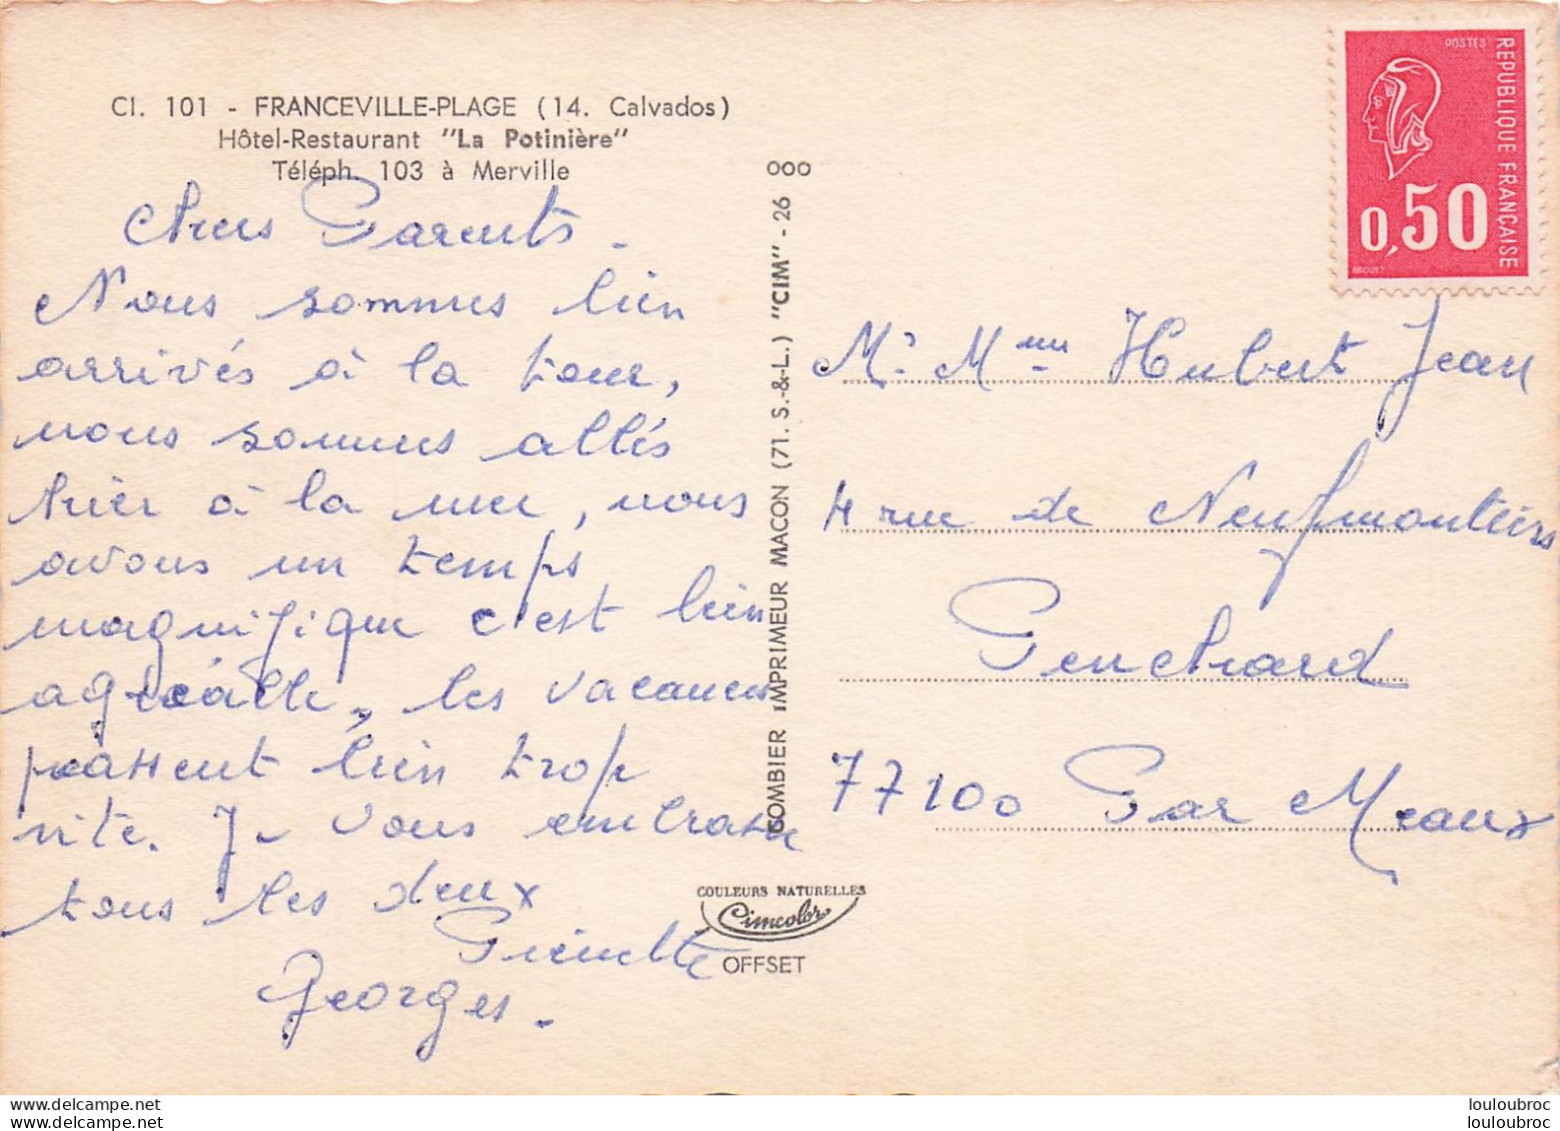 Cl. 101 - FRANCEVILLE-PLAGE (14. Calvados)
Hôtel-Restaurant "La Potinière"
Téléph. 103 à Merville
Chers Parents.
Nous sommes bien
arrivés à la tour,
nous sommes allés
hier à la mer, nous
avons un temps
magnifique c'est bien
agréable, les vacances
passent bien trop
vite. Je vous embrasse
tous les deux
Georges.
COMBIER IMPRIMEUR MACON (71. S.-&-L.) "CIM" - 26 000
COULEURS NATURELLES
Cimcolor
OFFSET
POSTES
REPUBLIQUE FRANÇAISE
0,50
BEQUET
Mr. Mme Hubert Jean
4 rue de Neufmontiers
Penchard
77100 Par Meaux
www.delcampe.net
louloubroc
www.delcampe.net
louloubroc